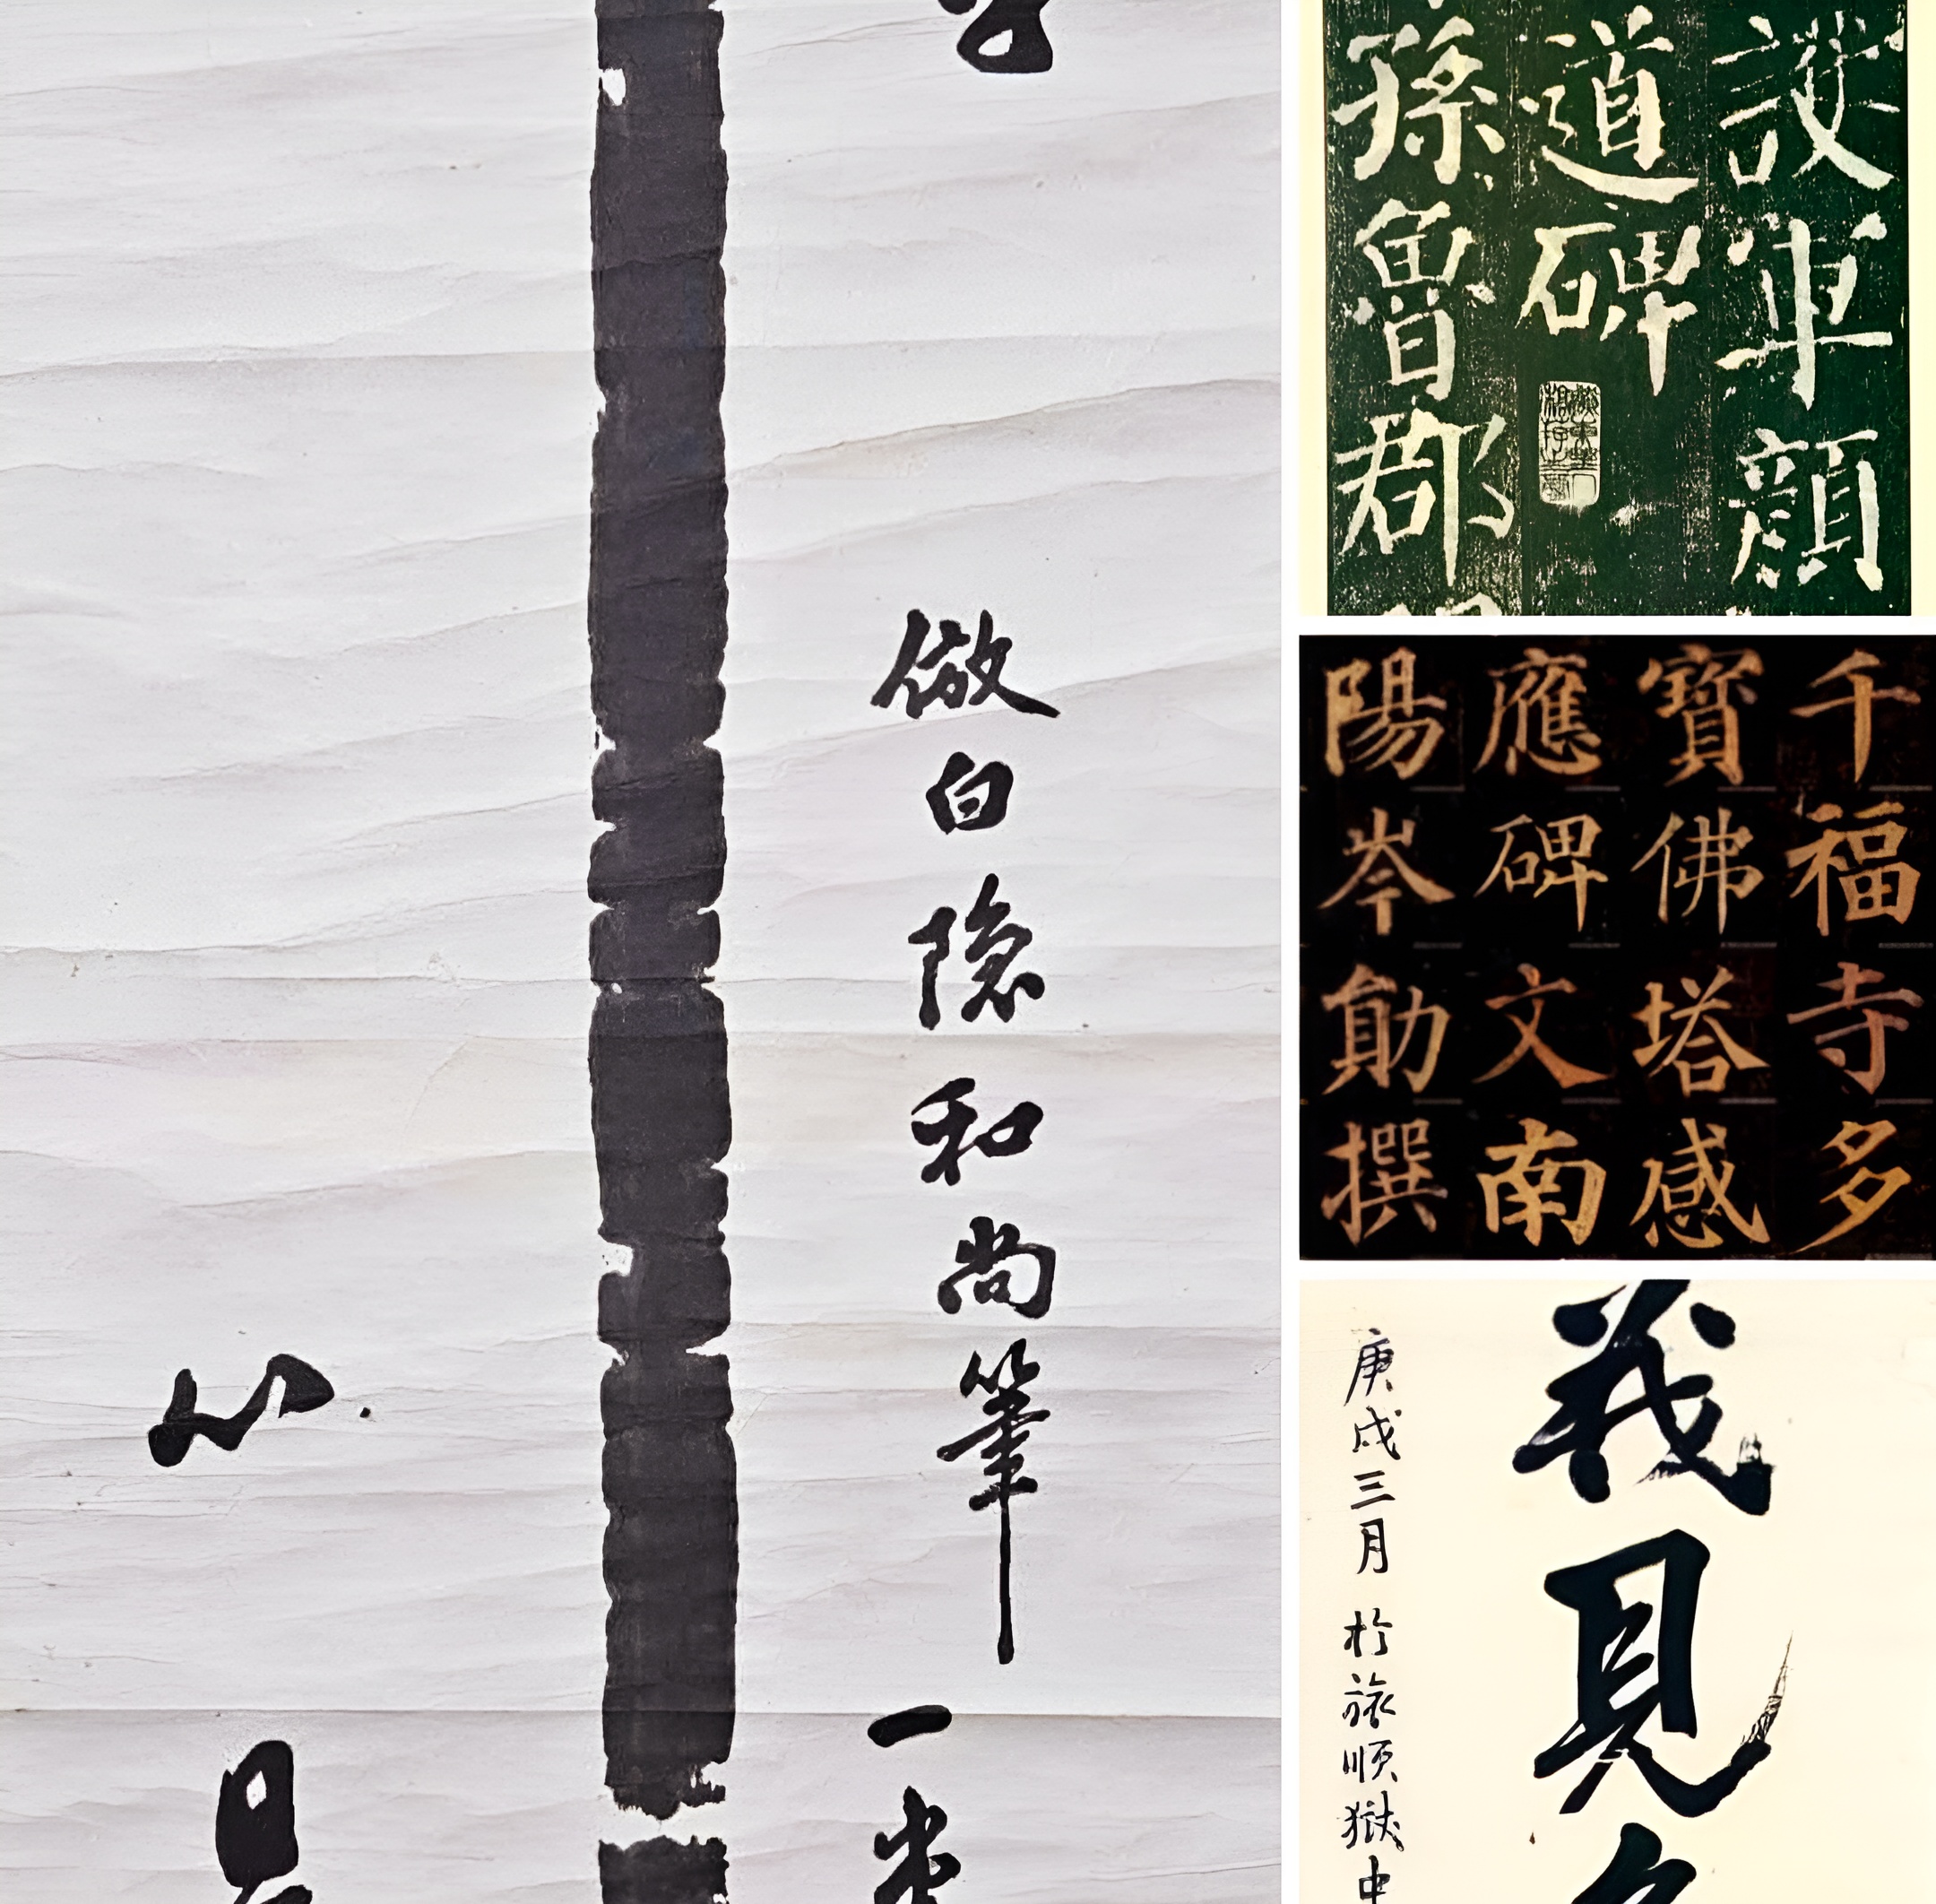 倣白隠和尚筆 一
心
護軍顏
道碑
孫魯郡
千福寺多
寶佛塔感
應碑文南
陽岑勛撰
義見
庚戌三月 於旅順獄中